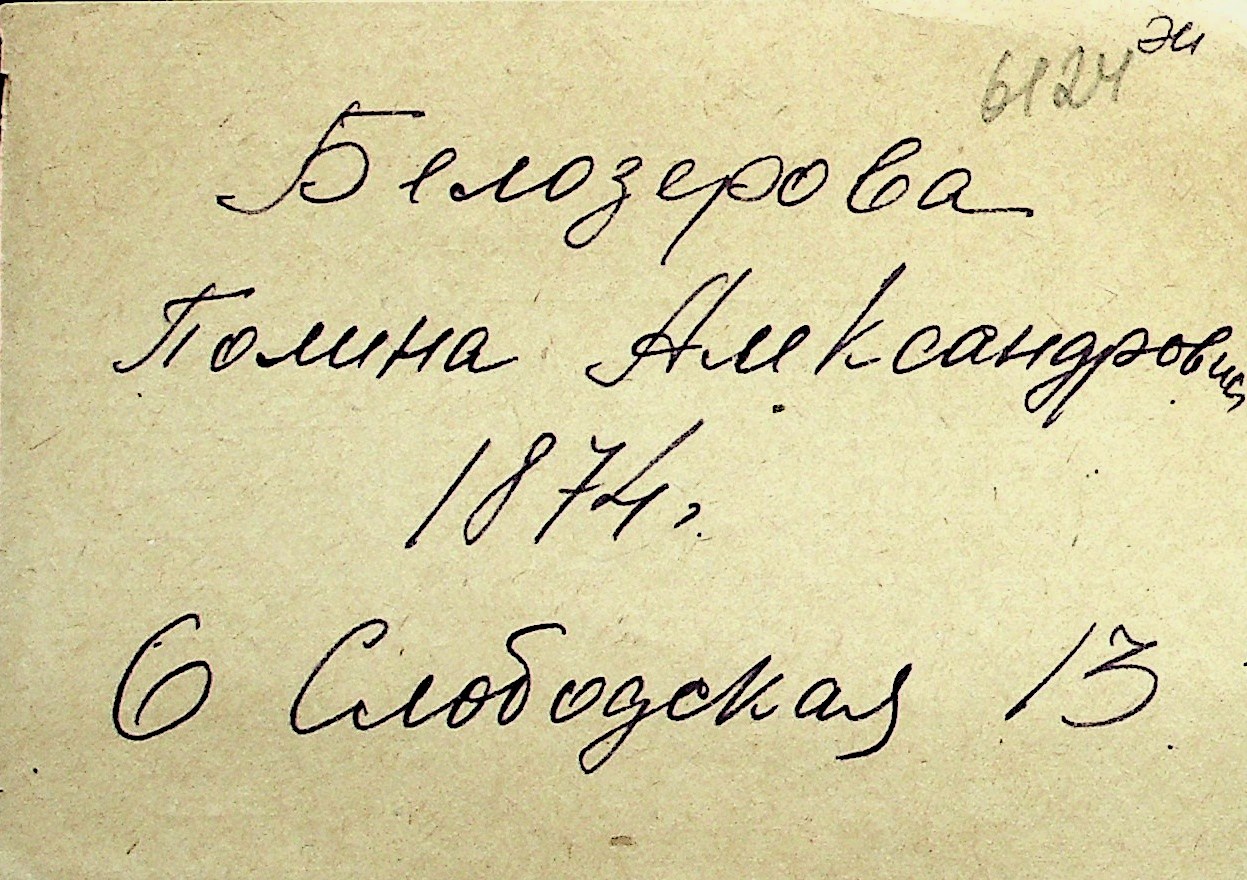 6124 эи
Белозерова
Полина Александровна
1874г.
6 Слободская 13